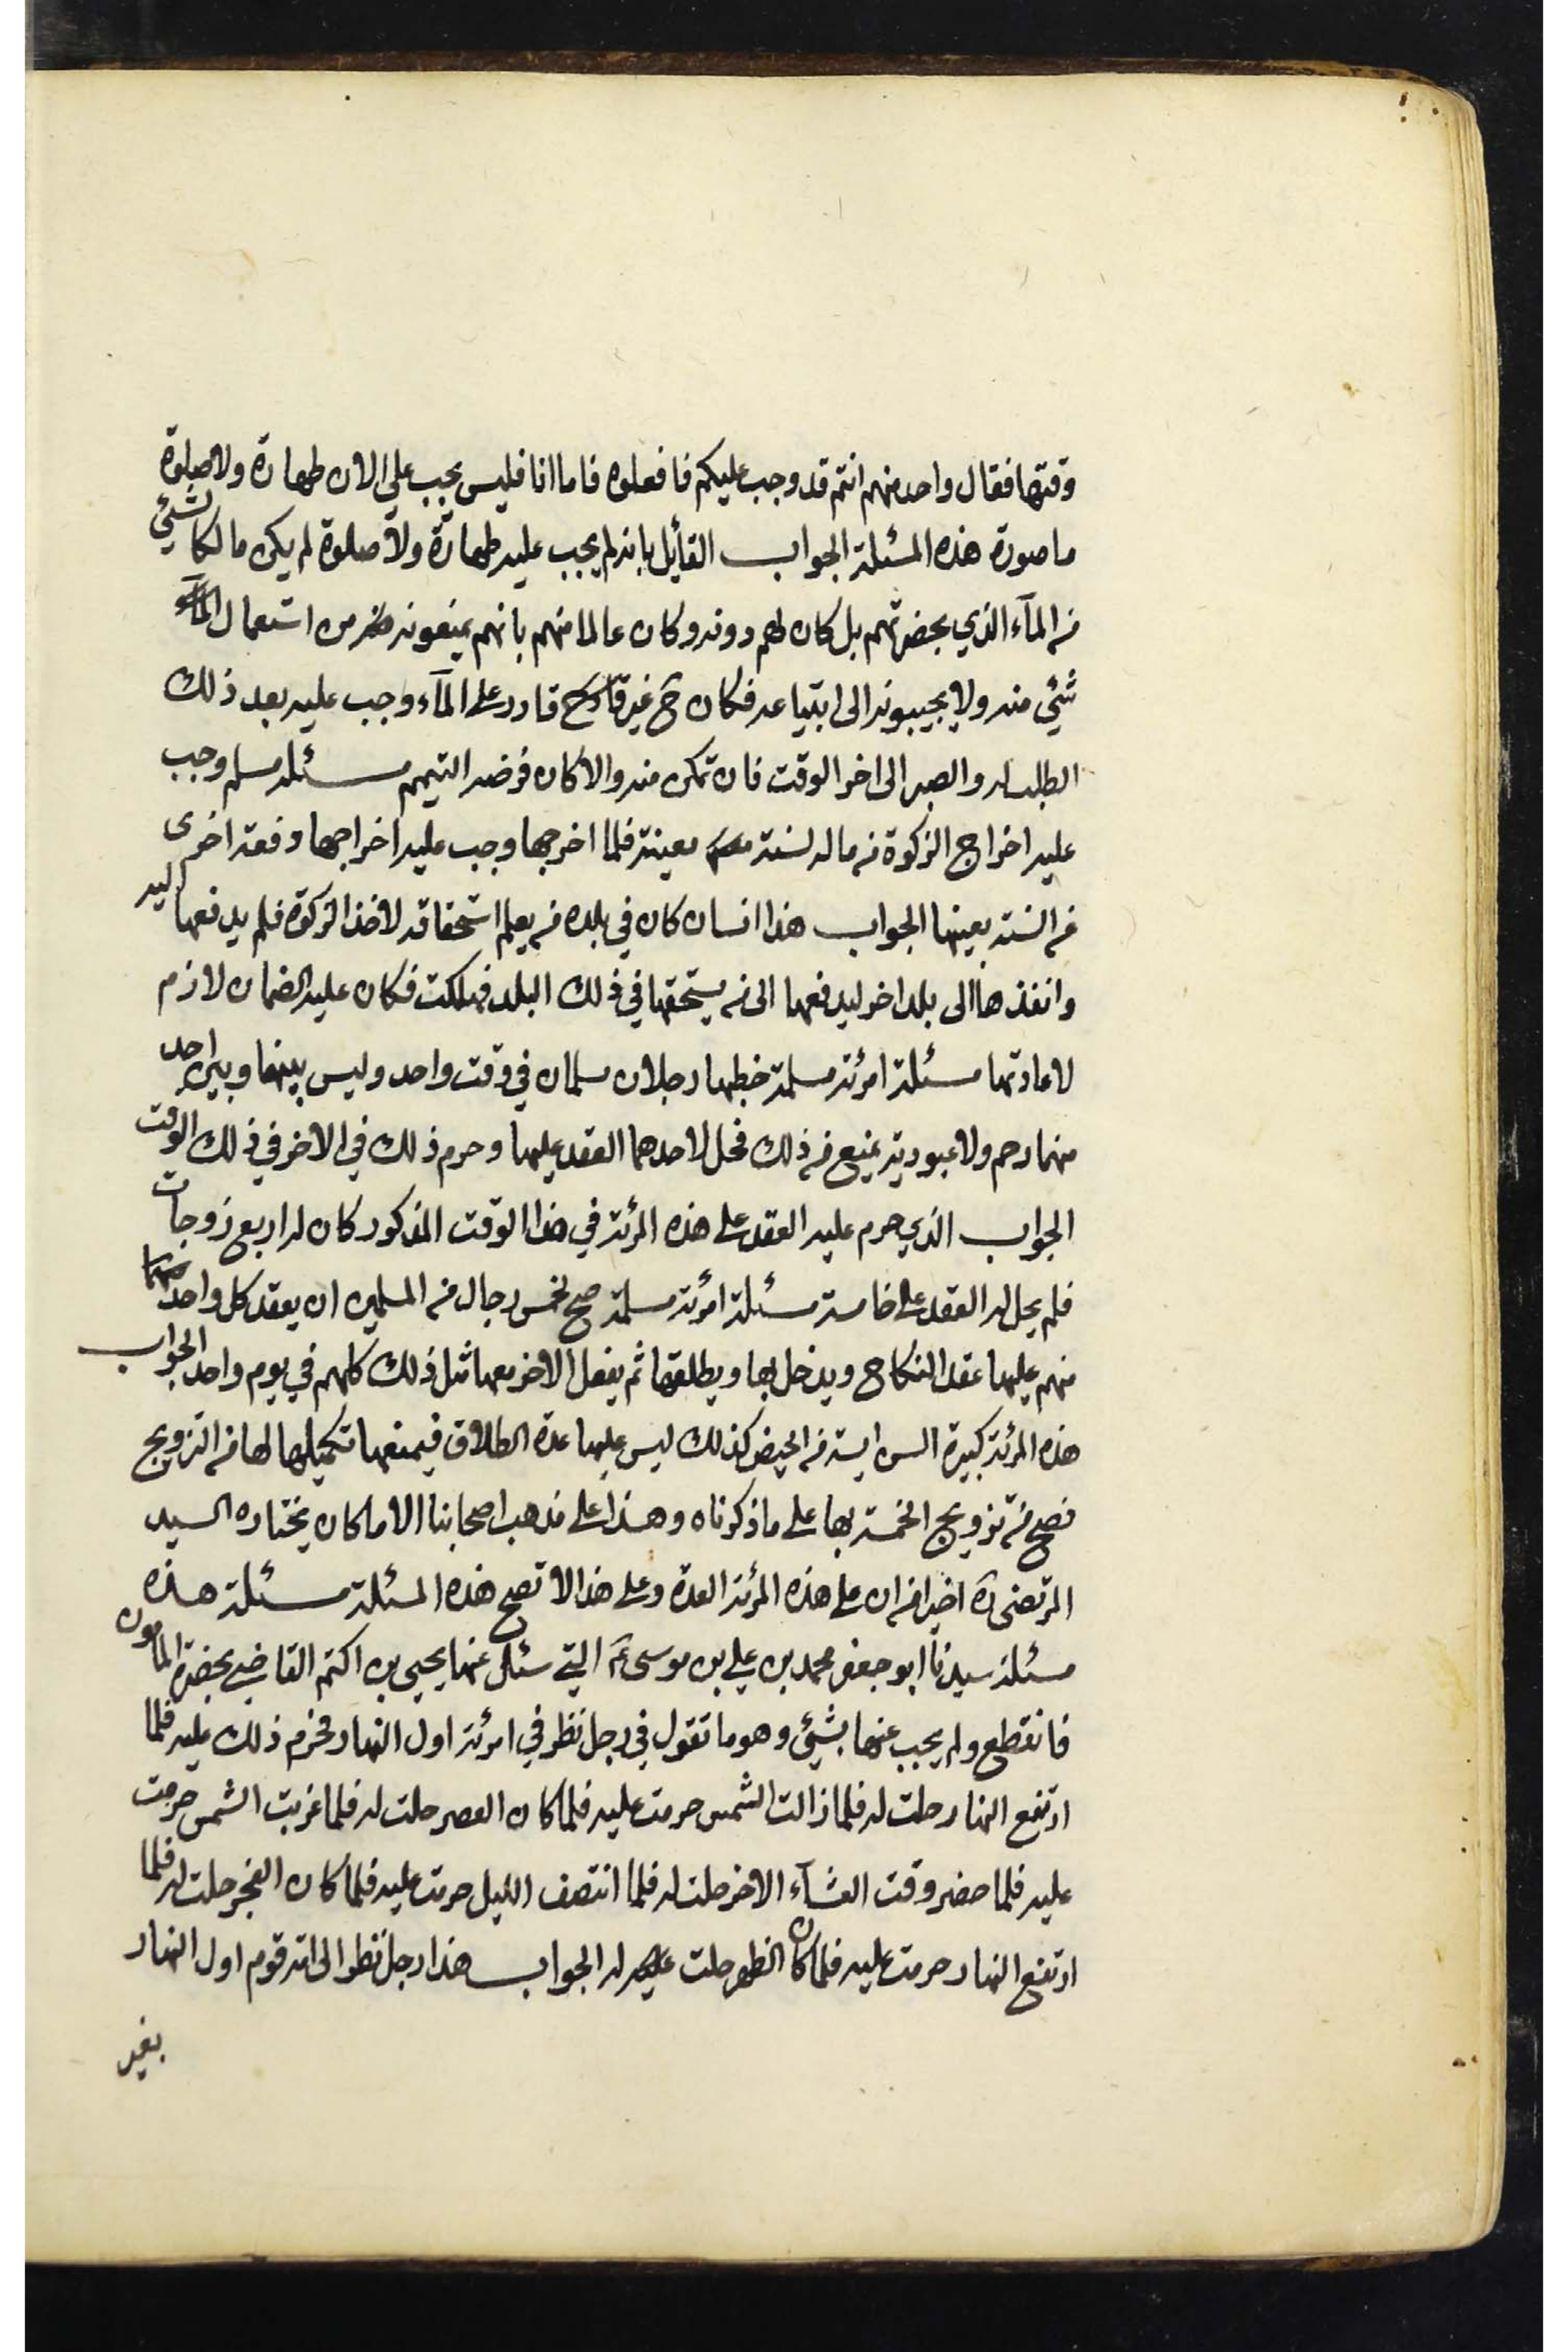 وقتها فقال واحد منهم انتم قد وجب عليكم فافعلوه فاما انا فليس يجب علي الان طهارة ولا صلوة
ما صورة هذه المسئلة الجواب القائل بانه لم يجب عليه طهارة ولا صلوة لم يكن مالكا لشئي
من المآء الذي بحضرتهم بل كان لهم دونه وكان عالما منهم بانهم يمنعونه من استعمال المآء
شئي منه ولا يجيبونه الى ابتياعه فكان ح غير قادر على المآء وجب عليه بعد ذلك
الطلب له والصبر الى اخر الوقت فان تمكن منه والا كان فرضه التيمم مسئله مسلم وجب
عليه اخراج الزكوة من ماله لسنة معينة فلما اخرجها وجب عليه اخراجها دفعة اخرى
من السنة بعينها الجواب هذا انسان كان في بلده من يعلم استحقاقه لاخذ الزكوة فلم يدفعها اليه
وانفذها الى بلد اخر ليدفعها الى من يستحقها في ذلك البلد فهلكت فكان عليه الضمان لازم
لاعادتها مسئلة امرئة مسلمة خطبها رجلان مسلمان في وقت واحد وليس بينها وبين احد
منهما رحم ولا عبودية يمنع من ذلك فحل لاحدهما العقد عليها وحرم ذلك في الاخر في ذلك الوقت
الجواب الذي حرم عليه العقد على هذه المرئة في هذا الوقت المذكور كان له اربع زوجات
فلم يحل له العقد على خامسة مسئلة امرئة مسلمة صح لخمس رجال من المسلمين ان يعقد كل واحد
منهم عليها عقد النكاح ويدخل بها ويطلقها ثم يفعل الاخر معها مثل ذلك كلهم في يوم واحد الجواب
هذه المرئة كبيرة السن ايسة من الحيض كذلك ليس عليها عدة الطلاق فيمنعها تكميلها لها من التزويج
فصح من تزويج الخمسة بها على ما ذكرناه وهذا على مذهب اصحابنا الا ما كان يختاره السيد
المرتضى ره اخيرا من ان على هذه المرئة العدة وعلى هذا لا تصح هذه المسئلة مسئلة هذه
مسئلة سيدنا ابو جعفر محمد بن علي بن موسى ع التي سئل عنها يحيى بن اكثم القاضي بحضرة المامون
فانقطع ولم يجب عنها بشئي وهو ما تقول في رجل نظر في امرئة اول النهار فحرم ذلك عليه فلما
ارتفع النهار حلت له فلما زالت الشمس حرمت عليه فلما كان العصر حلت له فلما غربت الشمس حرمت
عليه فلما حضر وقت العشآء الاخر حلت له فلما انتصف الليل حرمت عليه فلما كان الفجر حلت له فلما
ارتفع النهار حرمت عليه فلما كان الظهر حلت له الجواب هذا رجل نظر الى امة قوم اول النهار
بغير